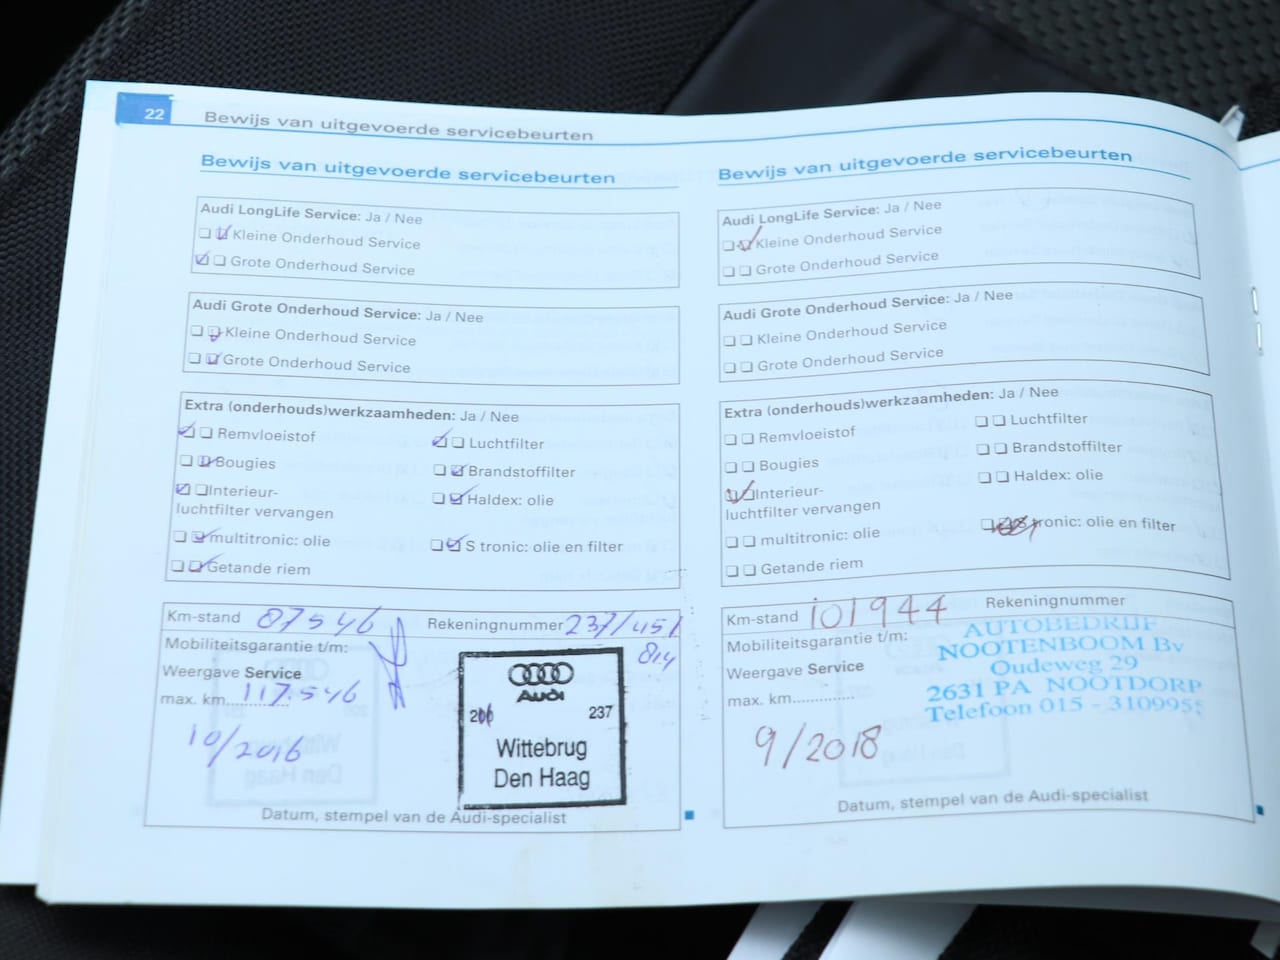 22
Bewijs van uitgevoerde servicebeurten
Bewijs van uitgevoerde servicebeurten
Audi LongLife Service: Ja / Nee
Kleine Onderhoud Service
Grote Onderhoud Service
Audi Grote Onderhoud Service: Ja / Nee
Kleine Onderhoud Service
Grote Onderhoud Service
Extra (onderhouds)werkzaamheden: Ja / Nee
Remvloeistof
Luchtfilter
Bougies
Brandstoffilter
Interieur-
luchtfilter vervangen
Haldex: olie
multitronic: olie
S tronic: olie en filter
Getande riem
Km-stand 87546
Rekeningnummer 237/451
814
Mobiliteitsgarantie t/m:
Weergave Service
max. km.............. 117.546
10/2016
Audi
237
Wittebrug
Den Haag
Datum, stempel van de Audi-specialist
Bewijs van uitgevoerde servicebeurten
Audi LongLife Service: Ja / Nee
Kleine Onderhoud Service
Grote Onderhoud Service
Audi Grote Onderhoud Service: Ja / Nee
Kleine Onderhoud Service
Grote Onderhoud Service
Extra (onderhouds)werkzaamheden: Ja / Nee
Remvloeistof
Luchtfilter
Bougies
Brandstoffilter
Interieur-
luchtfilter vervangen
Haldex: olie
multitronic: olie
S tronic: olie en filter
Getande riem
Km-stand 101944
Rekeningnummer
Mobiliteitsgarantie t/m:
Weergave Service
max. km..............
9/2018
AUTOBEDRIJF
NOOTENBOOM Bv
Oudeweg 29
2631 PA NOOTDORP
Telefoon 015 - 3109955
Datum, stempel van de Audi-specialist